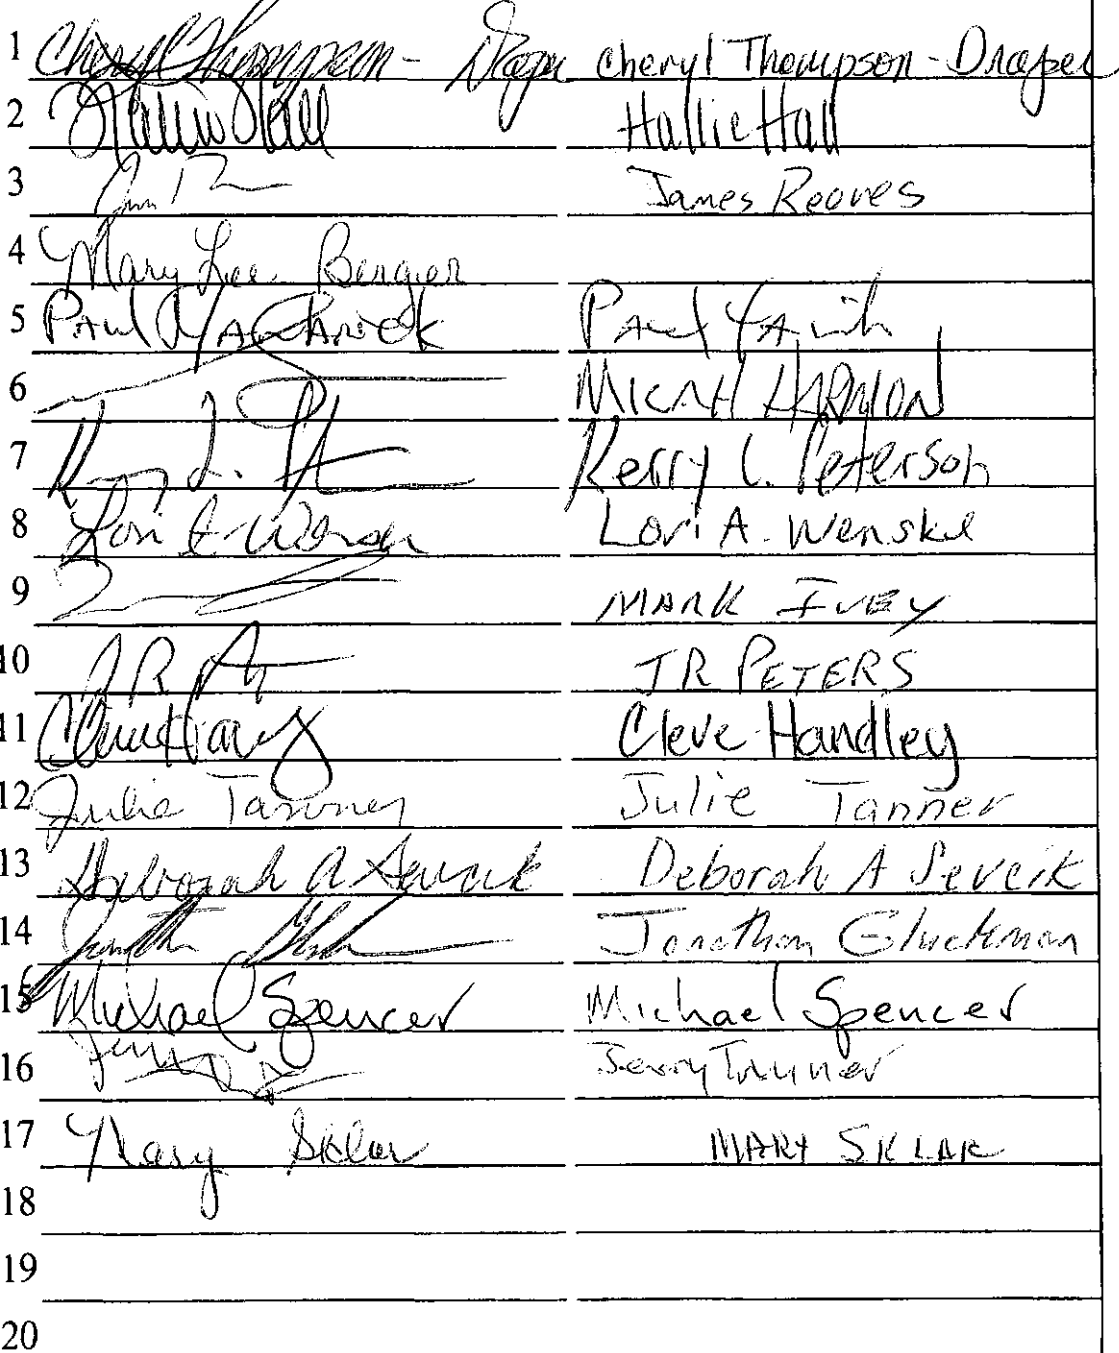 1 Cheryl Thompson - Draper Cheryl Thompson-Draper
2 Hallie Hall Hallie Hall
3 James Reeves
4 Mary Lee Berger
5 Paul Paul
6 Micah
7 Kerry L. Peterson
8 Lori A. Lori A. Wenske
9 MARK IVEY
10 JR JR PETERS
11 Cleve Handley
12 Julie Tanner Julie Tanner
13 Deborah A Sevcik Deborah A Sevcik
14 Jonathan Gluckman
15 Michael Spencer Michael Spencer
16 Jerry
17 Mary Sklar MARY SKLAR
18
19
20